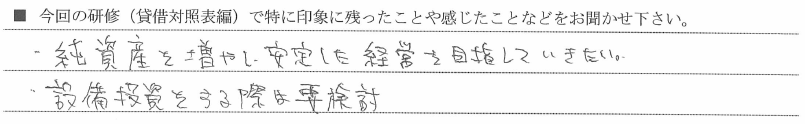 ■ 今回の研修（貸借対照表編）で特に印象に残ったことや感じたことなどをお聞かせ下さい。
・純資産を増やし安定した経営を目指していきたい。
・設備投資をする際は要検討